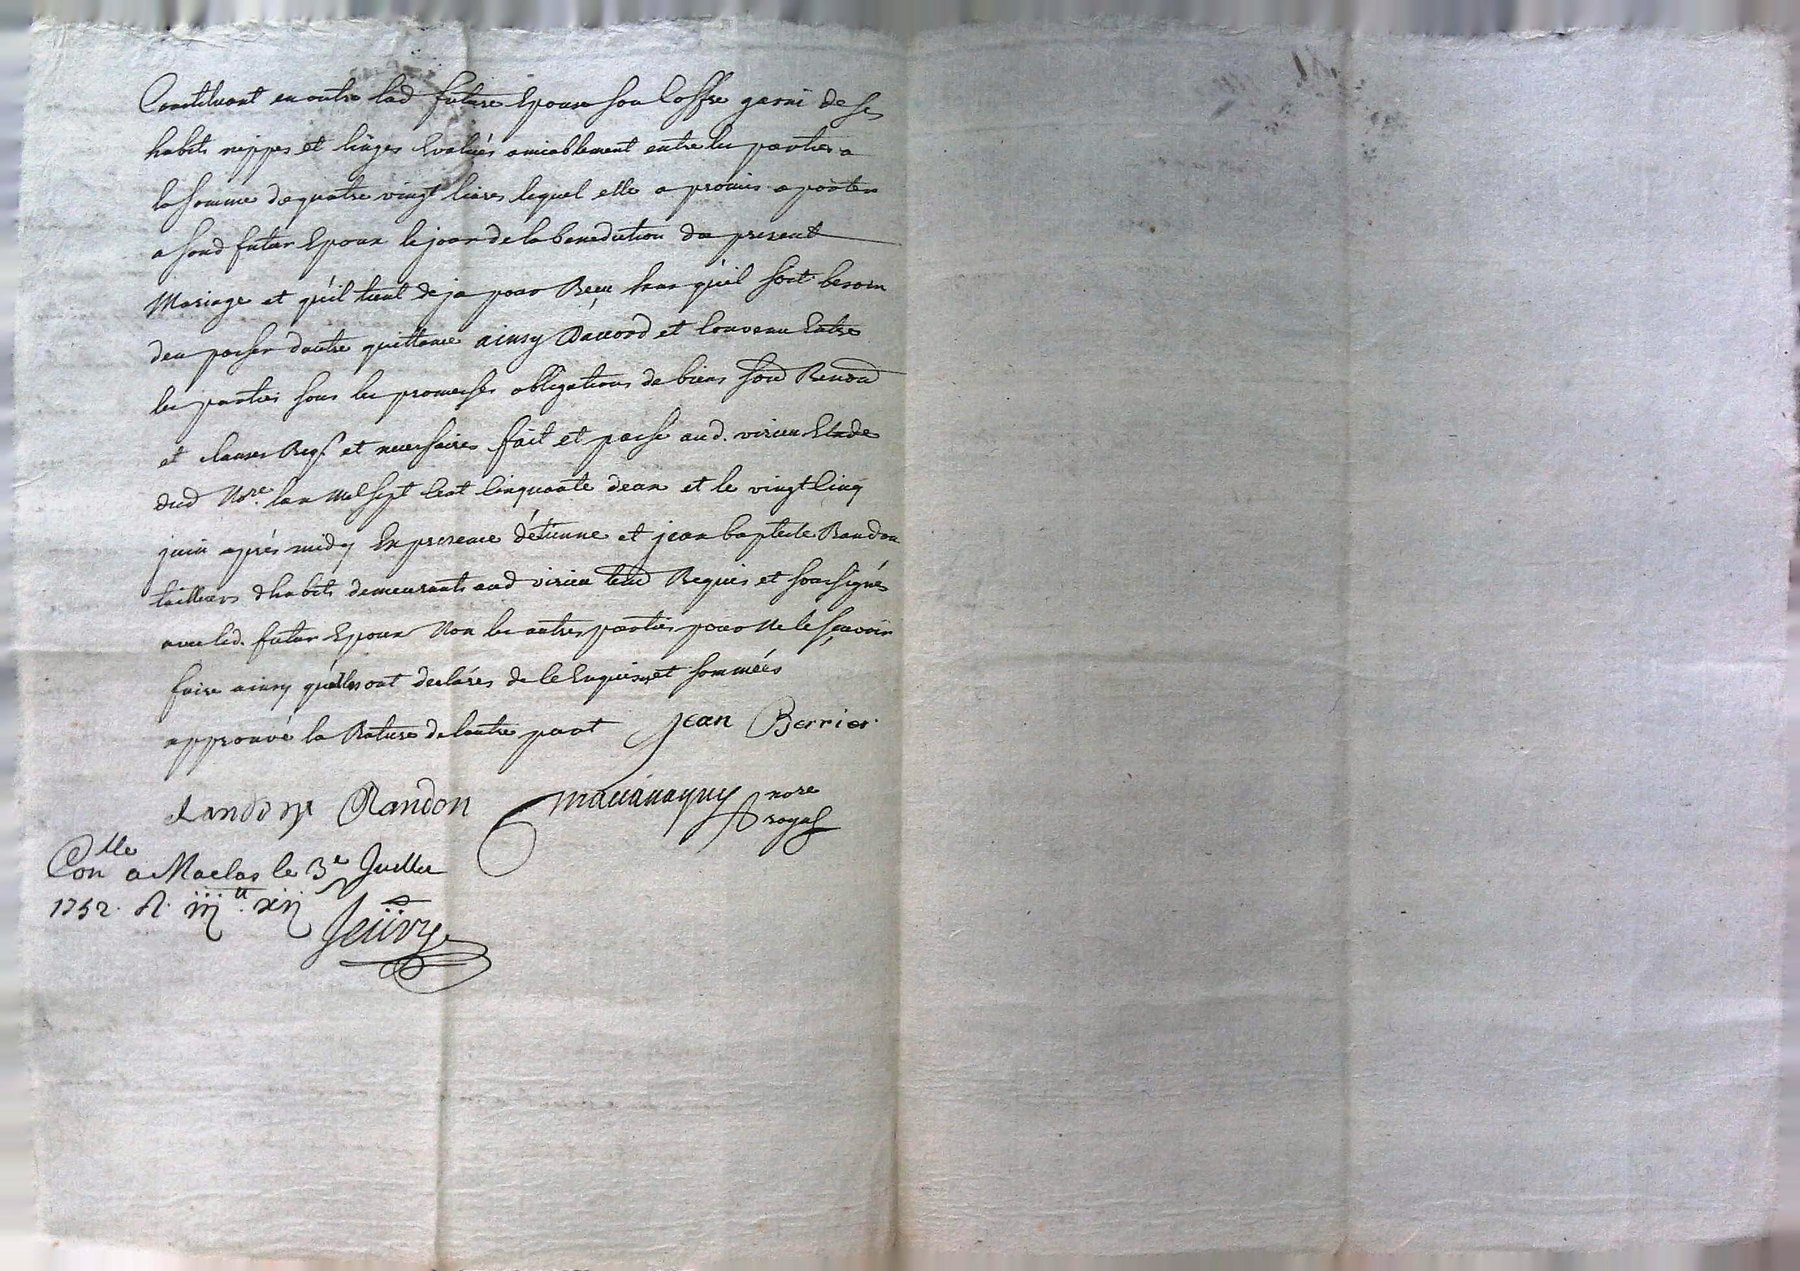 Constituant en outre lad future Epouse son Coffre garni de ses
habits nippes et linges Evalués amiablement entre les parties a
la somme de quatre vingt livres lequel elle a promis aporter
a sond futur Epoux le jour de la benediction du present
Mariage et qu'il tient deja pour Reçu sans qu'il soit besoin
den passer dautre quittance ainsy Daccord et Convenu Entre
les parties sous les promesses obligations de biens soud Renond
et clauses Reqs et necessaires fait et passé aud. virieu Etude
dud Nore lan Mil sept Cent Cinquante deux et le vingt Cinq
juin après midy En presence d'étienne et jean baptiste Randon
tailleurs dhabits demeurants aud virieu Requis et soussignés
avec led. futur Epoux Non les autres parties pour Ne le sçavoir
faire ainsy qu'elles ont declarés de ce Enquises et sommées
approuvé la Rature de lautre part Jean Berrier
Randon Randon nore
royal
Conlle a Maclas le 3e Juillet
1752. R.